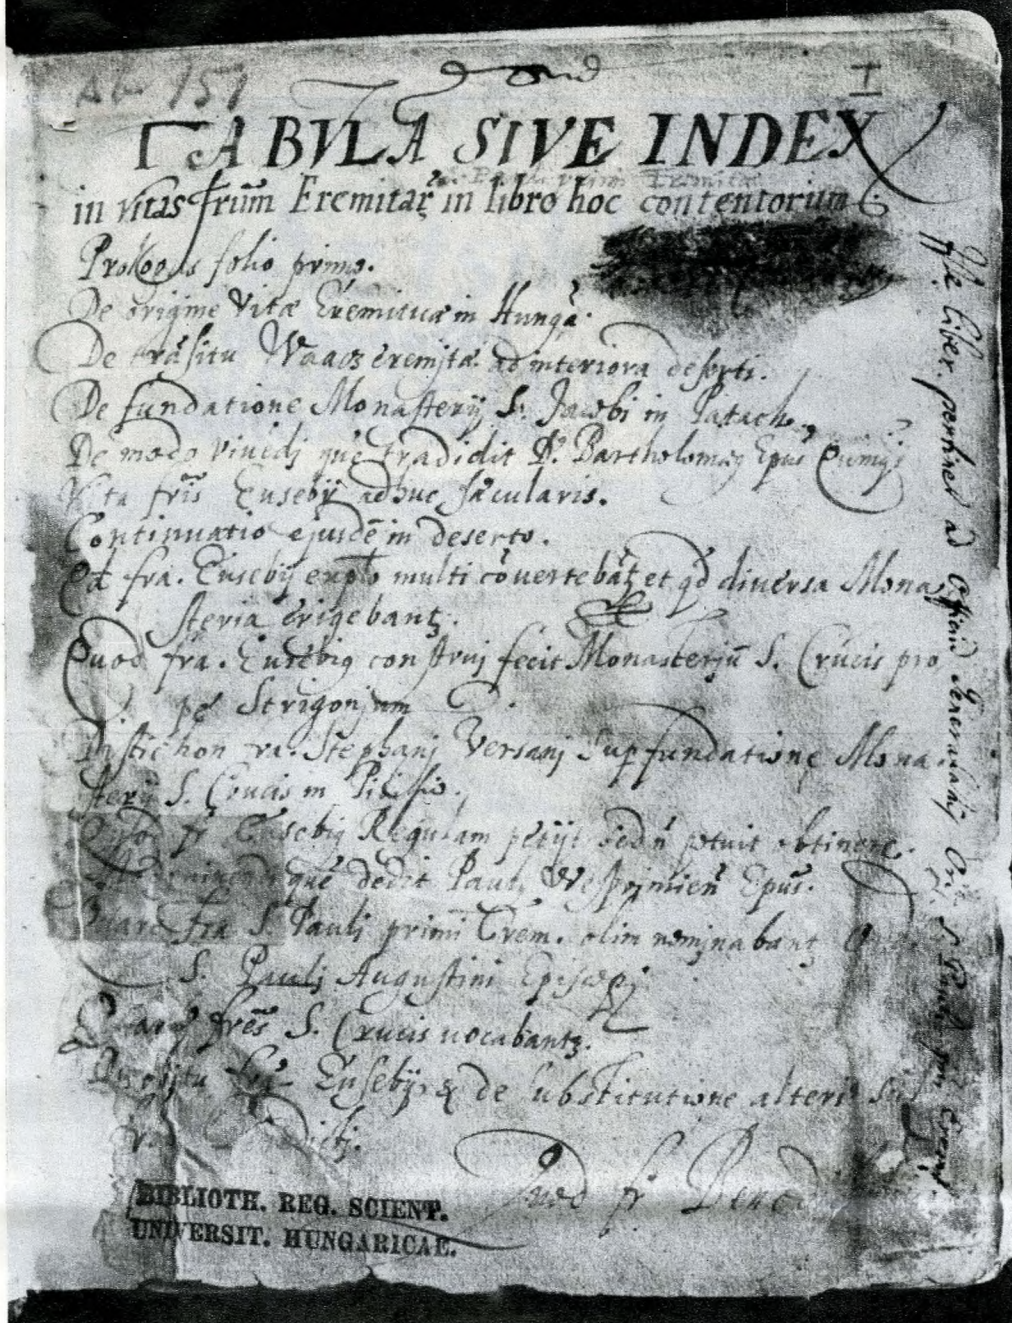 Ab 151
I
TABVLA SIVE INDEX
S. Pauli primi Eremitæ
in vitas frũm Eremitaꝝ in libro hoc contentorum
Prologus folio primo.
De origine vitæ Eremiticæ in Hungã.
De trãsitu Waacz eremitæ ad interiora deserti.
De fundatione Monasterij S. Jacobi in Patach.
De modo vivẽdj quẽ tradidit D. Bartholomeꝰ Epus
Vita fris Eusebij adhuc sæcularis.
Continuatio ejusdẽ in deserto.
fra. Eusebij explo multi cõvertebãt et qd diversa Mona
steria erigebant.
Quod fra. Eusebiꝰ construj fecit Monasterjũ S. Crucis pro
pe Strigonium
Distichon fra. Stephanj Versanj sup fundatione Mona
sterij S. Crucis in Pilisio.
Quod fr Eusebiꝰ Regulam petijt sed ñ potuit obtinere.
quẽ dedit Paulꝰ Wesprimieñ Epus.
Quare fra S. Paulj primi Erem. olim nominabant
S. Paulj Augustini Episcopj
fres S. Crucis vocabant.
Eusebij & de substitutione alteriꝰ
Quod fr Bene
BIBLIOTH. REG. SCIENT.
UNIVERSIT. HUNGARICAE.
Iste liber pertinet ad Generalem Ord. S. Pauli primi Erem.